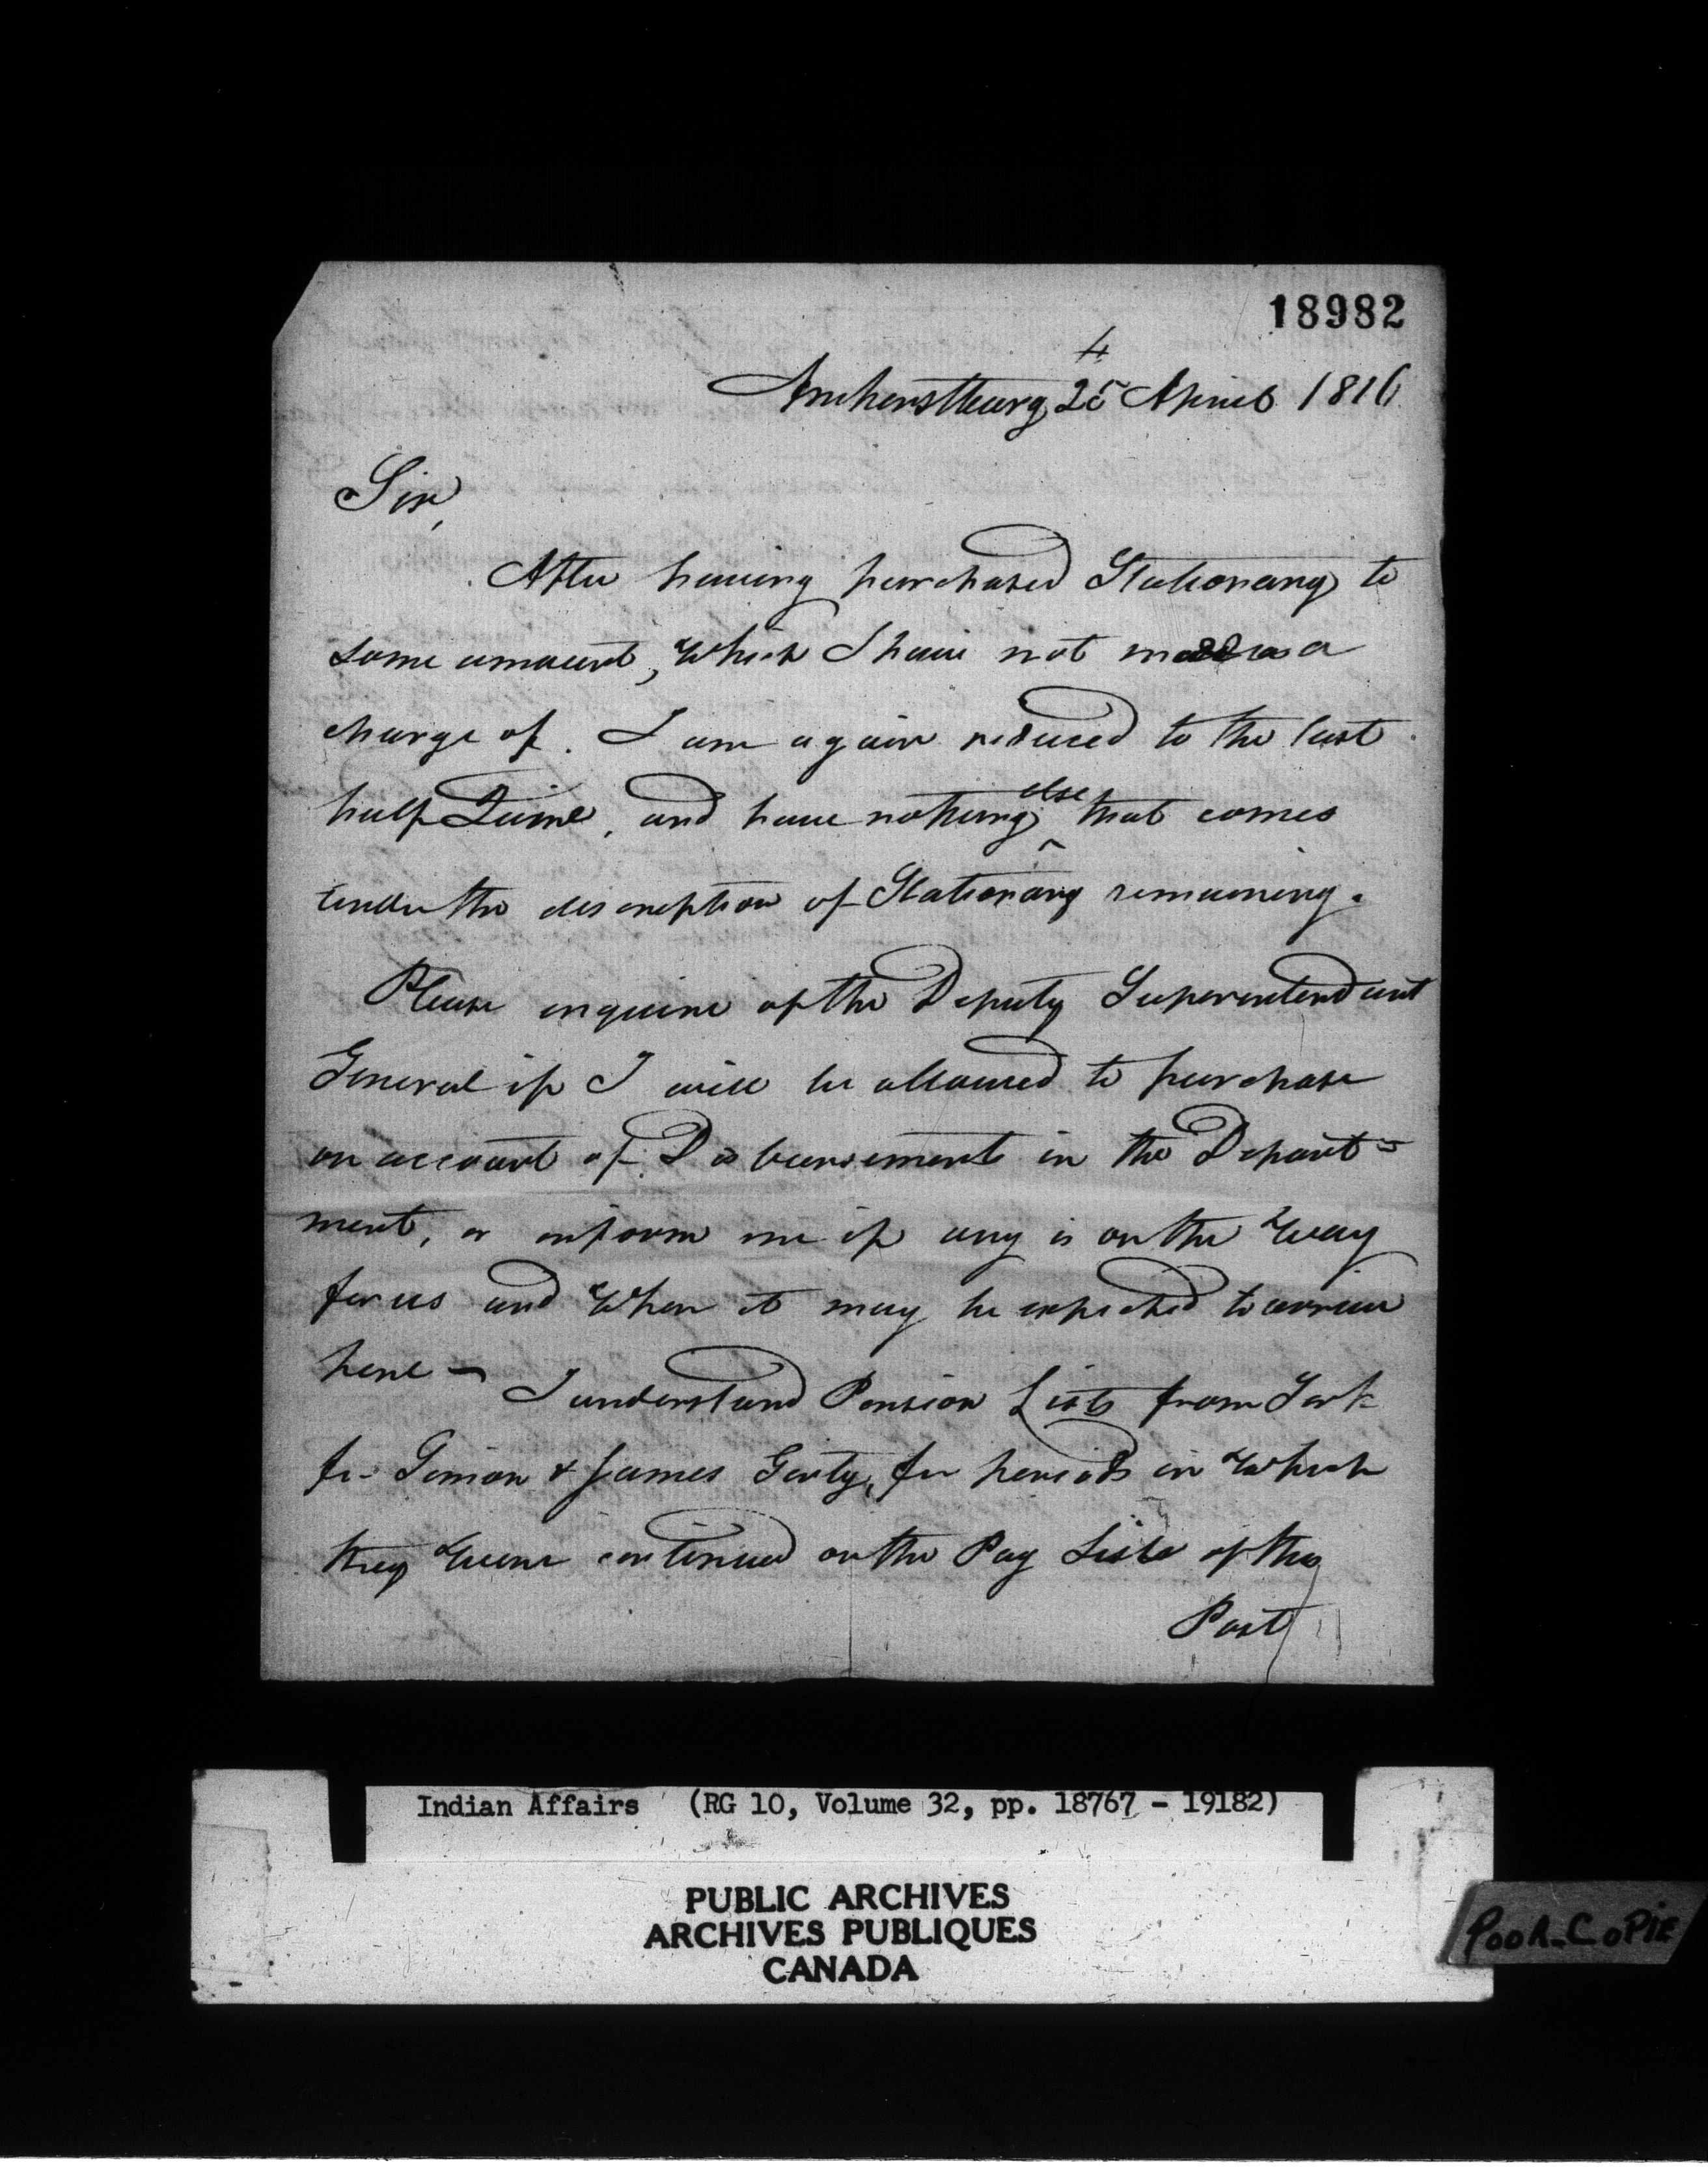 18982
4
Amherstburg 25 April 1816
Sir,
After having purchased Stationary to
some amount, Which I have not made a
charge of. I am again reduced to the last
half Quire, and have nothing else that comes
under the description of Stationary remaining.
Please enquire of the Deputy Superintendant
General if I will be allowed to purchase
on account of Disbursement in the Depart=
ment, or inform me if any is on the Way
for us and When it may be expected to arrive
here — I understand Pension Lists from York
for Simon & James Girty, for periods in Which
they Were continued on the Pay Lists of this
Post
Indian Affairs (RG 10, Volume 32, pp. 18767 - 19182)
PUBLIC ARCHIVES
ARCHIVES PUBLIQUES
CANADA
POOR-COPIE